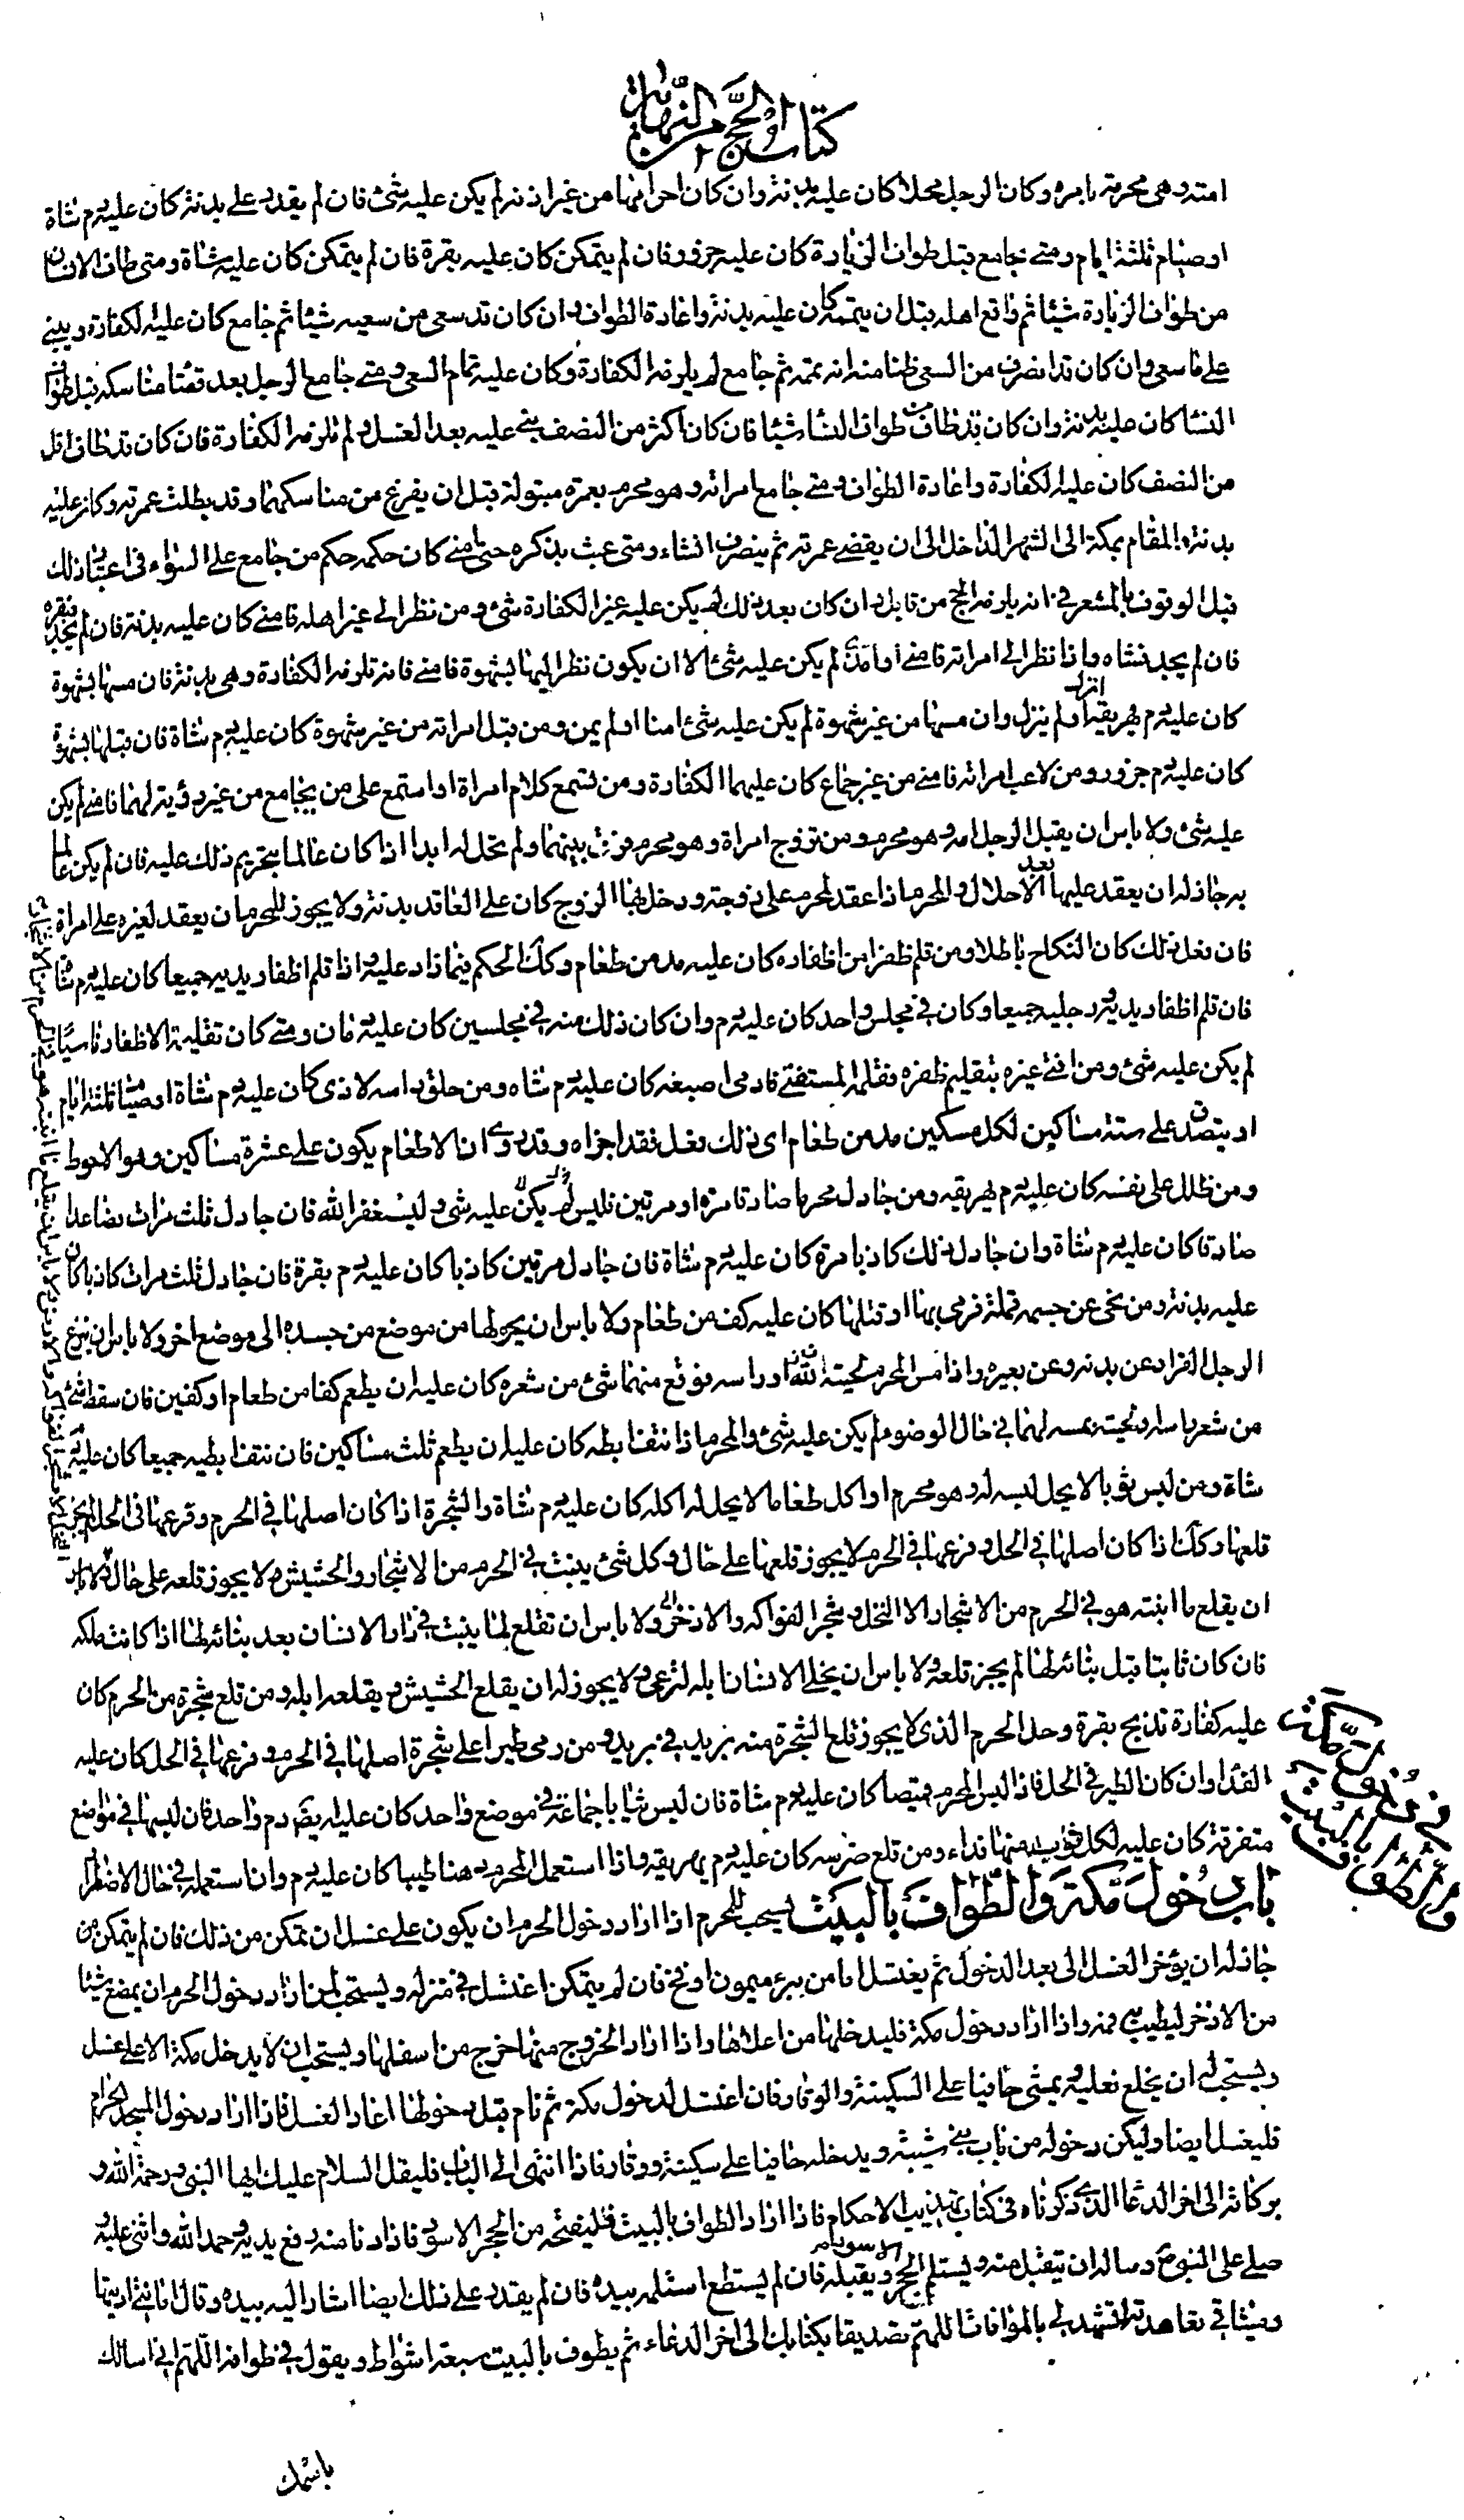 كتاب الحج من النهاية
امته وهي محرمة بامره وكان الرجل محلا كان عليه بدنة وان كان احرامها من غير اذنه لم يكن عليه شئ فان لم يقدر على بدنة كان عليه دم شاة
او صيام ثلثة ايام ومتى جامع قبل طواف الزيارة كان عليه جزور فان لم يتمكن كان عليه بقرة فان لم يتمكن كان عليه شاة ومتى طاف الانسان
من طواف الزيارة شيئا ثم واقع اهله قبل ان يتمه كان عليه بدنة واعادة الطواف وان كان قد سعى من سعيه شيئا ثم جامع كان عليه الكفارة ويبني
على ما سعى وان كان قد انصرف من السعي ظنا منه انه تممه ثم جامع لم يلزمه الكفارة وكان عليه تمام السعي ومتى جامع الرجل بعد قضاء مناسكه قبل طواف
النساء كان عليه بدنة وان كان قد طاف من طواف النساء شيئا فان كان اكثر من النصف بنى عليه بعد الغسل ولم تلزمه الكفارة فان كان قد طاف اقل
من النصف كان عليه الكفارة واعادة الطواف ومتى جامع امراته وهو محرم بعمرة مبتولة قبل ان يفرغ من مناسكهما وقد بطلت عمرته وكان عليه
بدنة والمقام بمكة الى الشهر الداخل الى ان يقضي عمرته ثم ينصرف انشاء ومتى عبث بذكره حتى امنى كان حكمه حكم من جامع على السواء في اعتبار ذلك
قبل الوقوف بالمشعر في انه يلزمه الحج من قابل وان كان بعد ذلك لم يكن عليه غير الكفارة شئ ومن نظر الى غير اهله فامنى كان عليه بدنة فان لم يجد فبقرة
فان لم يجد فشاه واذا نظر الى امراته فامنى او امذى لم يكن عليه شئ الا ان يكون نظر اليها بشهوة فامنى فانه تلزمه الكفارة وهي بدنة فان مسها بشهوة
كان عليه دم يهريقه انزل او لم ينزل وان مسها من غير شهوة لم يكن عليه شئ امنا او لم يمن ومن قبل امراته من غير شهوة كان عليه دم شاة فان قبلها بشهوة
كان عليه دم جزور ومن لاعب امراته فامنى من غير جماع كان عليهما الكفارة ومن تسمع كلام امراة او استمع على من يجامع من غير رؤية لهما فامنى لم يكن
عليه شئ ولا باس ان يقبل الرجل امه وهو محرم ومن تزوج امراة وهو محرم فرق بينهما ولم تحل له ابدا اذا كان عالما بتحريم ذلك عليه فان لم يكن عالما
به جاز له ان يعقد عليها بعد الاحلال والمحرم اذا عقد لمحرم على زوجة ودخل بها الزوج كان على العاقد بدنة ولا يجوز للمحرم ان يعقد لغيره على امراة
فان فعل ذلك كان النكاح باطلا ومن قلم ظفرا من اظفاره كان عليه مد من طعام وكك الحكم فيما زاد عليه اذا قلم اظفار يديه جميعا كان عليه دم شاة
فان قلم اظفار يديه ورجليه جميعا وكان في مجلس واحد كان عليه دم وان كان ذلك منه في مجلسين كان عليه دمان ومتى كان تقليمه الاظفار ناسيا
لم يكن عليه شئ ومن افتى غيره بتقليم ظفره فقلمه المستفتي فادمى اصبعه كان عليه دم شاه ومن حلق راسه لاذى كان عليه دم شاة او صيام ثلثة ايام
او يتصدق على ستة مساكين لكل مسكين مد من طعام اي ذلك فعل فقد اجزاه وقد روي ان الاطعام يكون على عشرة مساكين وهو الاحوط
ومن ظلل على نفسه كان عليه دم يهريقه ومن جادل محرما صادقا مرة او مرتين فليس يكن عليه شئ وليستغفر الله فان جادل ثلث مرات فصاعدا
صادقا كان عليه دم شاة وان جادل ذلك كاذبا مرة كان عليه دم شاة فان جادل مرتين كاذبا كان عليه دم بقرة فان جادل ثلث مرات كاذبا كان
عليه بدنة ومن نحى عن جسمه قملة فرمى بها او قتلها كان عليه كف من طعام ولا باس ان يحولها من موضع من جسده الى موضع اخر ولا باس ان ينزع
الرجل القراد عن بدنه وعن بعيره واذا مس المحرم لحيته او راسه فوقع منهما شئ من شعره كان عليه ان يطعم كفا من طعام او كفين فان سقط شئ
من شعر راسه ولحيته بمسه لهما في حال الوضوء لم يكن عليه شئ والمحرم اذا نتف ابطه كان عليه ان يطعم ثلث مساكين فان نتف ابطيه جميعا كان عليه دم
شاة ومن لبس ثوبا لا يحل لبسه له وهو محرم او اكل طعاما لا يحل له اكله كان عليه دم شاة والشجرة اذا كان اصلها في الحرم وفرعها في الحل لم يجز
قلعها وكك اذا كان اصلها في الحل وفرعها في الحرم لا يجوز قلعها على حال وكل شئ ينبت في الحرم من الاشجار والحشيش ولا يجوز قلعه على حال ولا باس
ان يقلع ما انبته هو في الحرم من الاشجار الا النخل وشجر الفواكه والاذخر ولا باس ان تقلع لما ينبت في دار الانسان بعد بنائه لها اذا كانت ملكه
فان كان نابتا قبل بنائه لها لم يجز قلعه ولا باس ان يخلي الانسان ابله لترعى ولا يجوز له ان يقلع الحشيش ويقلعه ابله ومن قلع شجرة من الحرم كان
عليه كفارة تذبح بقرة وحد الحرم الذي لا يجوز قلع الشجرة منه بريد في بريد ومن رمى طيرا على شجرة اصلها في الحرم وفرعها في الحل كان عليه
الفداء وان كان الطير في الحل فاذا لبس المحرم قميصا كان عليه دم شاة فان لبس ثيابا جماعة في موضع واحد كان عليه دم واحد فان لبسها في مواضع
متفرقة كان عليه لكل ثوب منها فداء ومن قلع ضرسه كان عليه دم يهريقه واذا استعمل المحرم دهنا طيبا كان عليه دم وان استعمله في حال الاضطرار
باب دخول مكة والطواف بالبيت يستحب للمحرم اذا اراد دخول الحرم ان يكون على غسل ان تمكن من ذلك فان لم يتمكن
جاز له ان يؤخر الغسل الى بعد الدخول ثم يغتسل اما من بير ميمون او فخ فان لم يتمكن اغتسل في منزله ويستحب لمن اراد دخول الحرم ان يمضغ شيئا
من الاذخر ليطيب به فمه واذا اراد دخول مكة فليدخلها من اعلاها واذا اراد الخروج منها خرج من اسفلها ويستحب ان لا يدخل مكة الا على غسل
ويستحب له ان يخلع نعليه ويمشي حافيا على السكينة والوقار فان اغتسل لدخول مكة ثم نام قبل دخولها اعاد الغسل فاذا اراد دخول المسجد الحرام
فليغسل ايضا وليكن دخوله من باب بني شيبة ويدخله حافيا على سكينة ووقار فاذا انتهى الى الباب فليقل السلام عليك ايها النبي ورحمة الله و
بركاته الى اخر الدعاء الذي ذكرناه في كتاب تهذيب الاحكام فاذا اراد الطواف بالبيت فليفتحه من الحجر الاسود فاذا دنا منه رفع يديه وحمد الله واثنى عليه
صلى على النبي وساله ان يتقبل منه ويستلم الحجر الاسود ويقبله فان لم يستطع استلمه بيده فان لم يقدر على ذلك ايضا اشار اليه بيده وقال امانتي اديتها
وميثاقي تعاهدته لتشهد لي بالموافاة اللهم تصديقا بكتابك الى اخر الدعاء ثم يطوف بالبيت سبعة اشواط ويقول في طوافه اللهم اني اسالك
باسمك
في دخول مكة
والطواف بالبيت